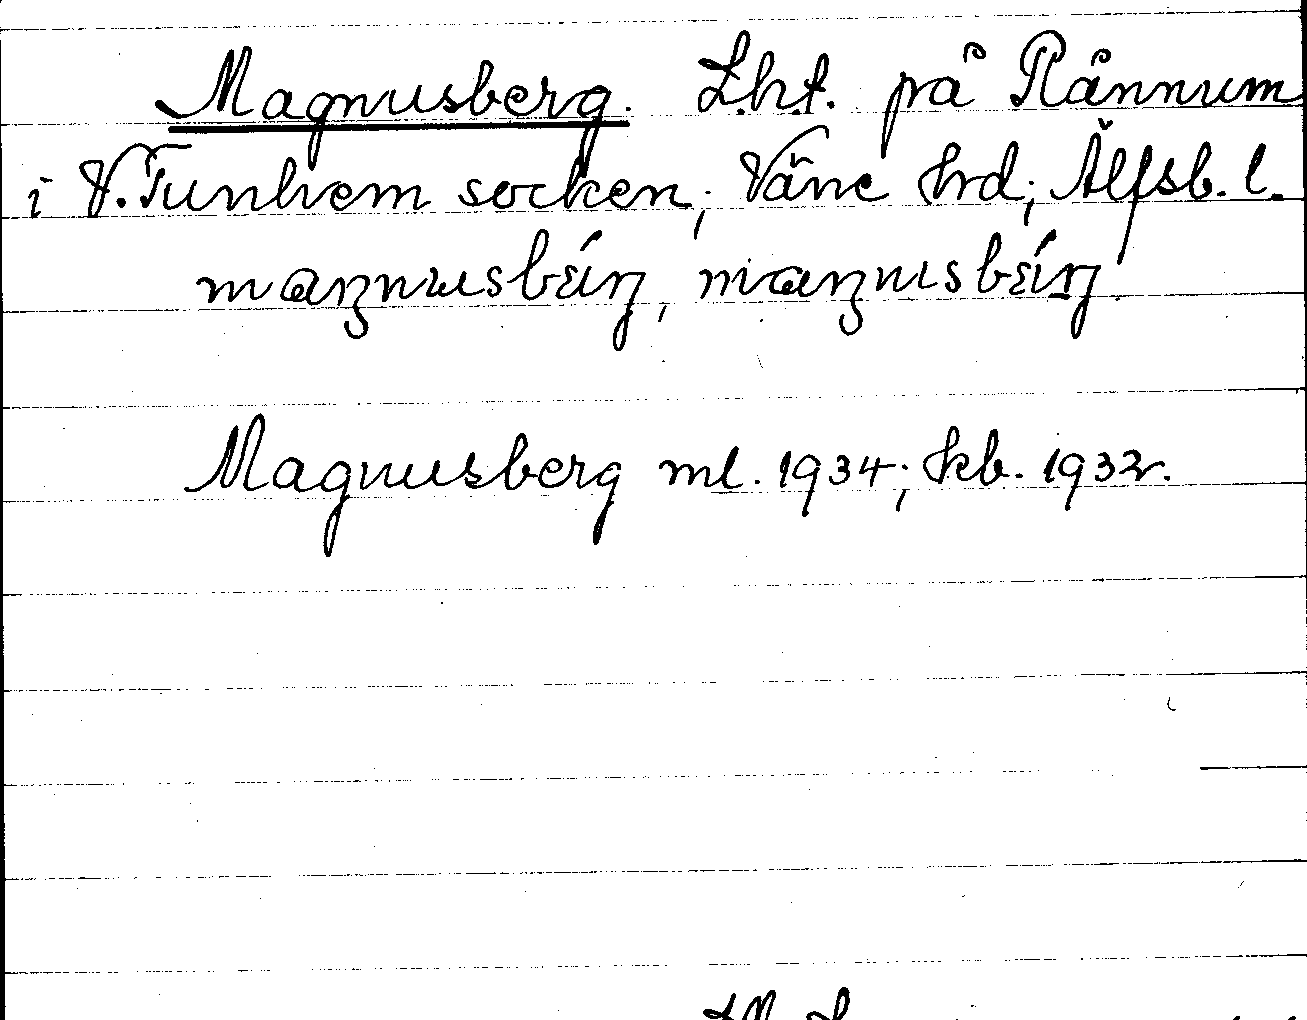 Magnusberg. Lht. på Rånnum
i V. Tunhem socken; Väne hrd; Älfsb. l.
maŋnusbæ̀rj, maŋnusbæ̀rj
Magnusberg ml. 1934; kb. 1932.